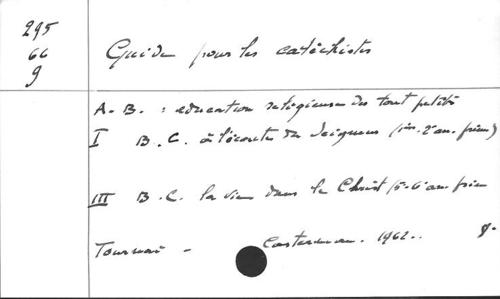 295
66
9
Guide pour les catéchistes
A.-B. : education religieuse des tout petits
I B.C. à l'écoute du Seigneur (1re. 2e an. prim)
III B.C. la vie dans le Christ (5-6e an prim
Tournai - Casterman. 1962..